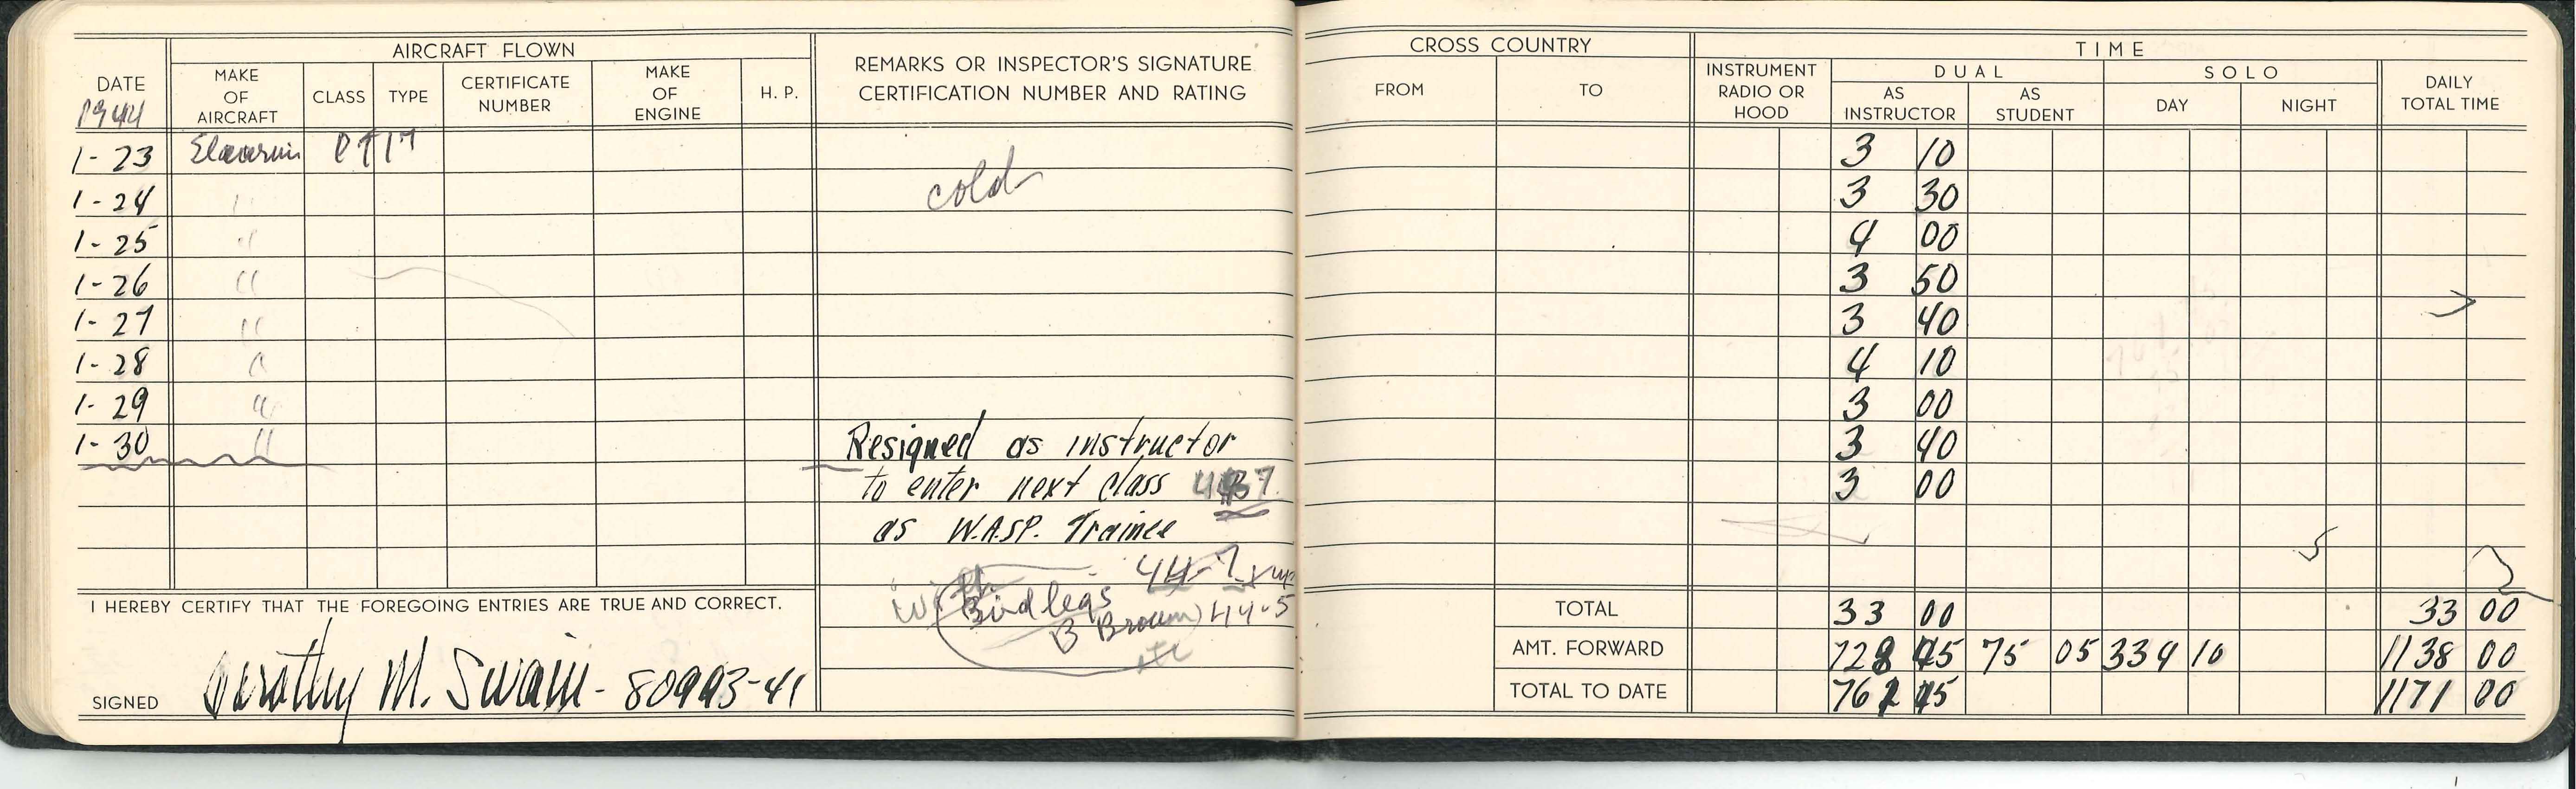 AIRCRAFT FLOWN
DATE 1944 MAKE OF AIRCRAFT CLASS TYPE CERTIFICATE NUMBER MAKE OF ENGINE H. P. REMARKS OR INSPECTOR'S SIGNATURE CERTIFICATION NUMBER AND RATING
1-23 PT17
1-24 " cold
1-25 "
1-26 "
1-27 "
1-28 "
1-29 "
1-30 " Resigned as instructor
to enter next class
as W.A.S.P. Trainee
44-7
with Birdlegs
B Brown) 44-5
etc
I HEREBY CERTIFY THAT THE FOREGOING ENTRIES ARE TRUE AND CORRECT.
SIGNED Dorothy M. Swain - 80993-41
CROSS COUNTRY TIME
FROM TO INSTRUMENT RADIO OR HOOD DUAL SOLO DAILY TOTAL TIME
AS INSTRUCTOR AS STUDENT DAY NIGHT
3 10
3 30
4 00
3 50
3 40
4 10
3 00
3 40
3 00
TOTAL 33 00 33 00
AMT. FORWARD 728 45 75 05 334 10 1138 00
TOTAL TO DATE 761 45 1171 00